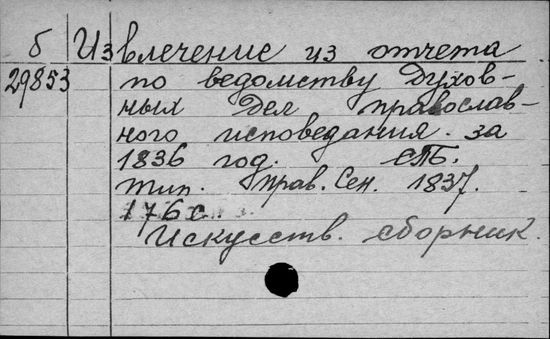 б Извлечение из отчета
29853 по ведомству Духов-
ных Дел православ-
ного исповедания за
1836 год. СПБ.
тип. Прав. Сен. 1837.
176 с.
Искусств. сборник.